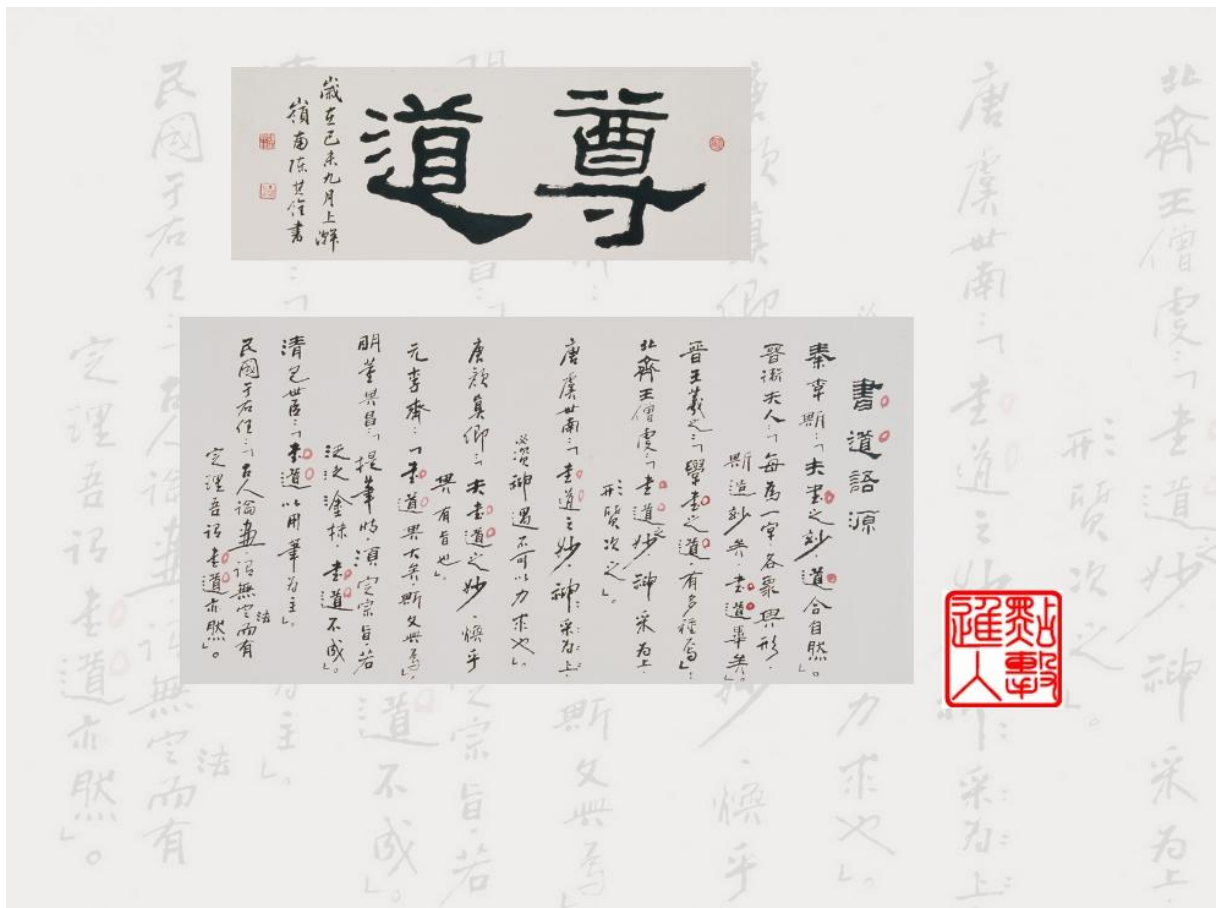 尊道
歲在己未九月上澣
嶺南陳其銓書
書道語源
秦李斯:「夫書之妙,道合自然」。
晉衛夫人:「每為一字各象其形,
斯造妙矣,書道畢矣」。
晉王羲之:「學書之道,有多種焉」:
北齊王僧虔:「書道之妙,神采為上,
形質次之」。
唐虞世南:「書道之妙,神采為上:
必須神遇不可以力求也」。
唐顏真卿:「夫書道之妙,煥乎
其有旨也」。
元李齊:「書道與大矣斯文興焉」,
明董其昌:「提筆時,須定宗旨,若
泛泛塗抹,書道不成」。
清包世臣:「書道以用筆為主」。
民國于右任:「古人論畫,謂無定法而有
定理吾謂書道亦然」。
點擊
進入